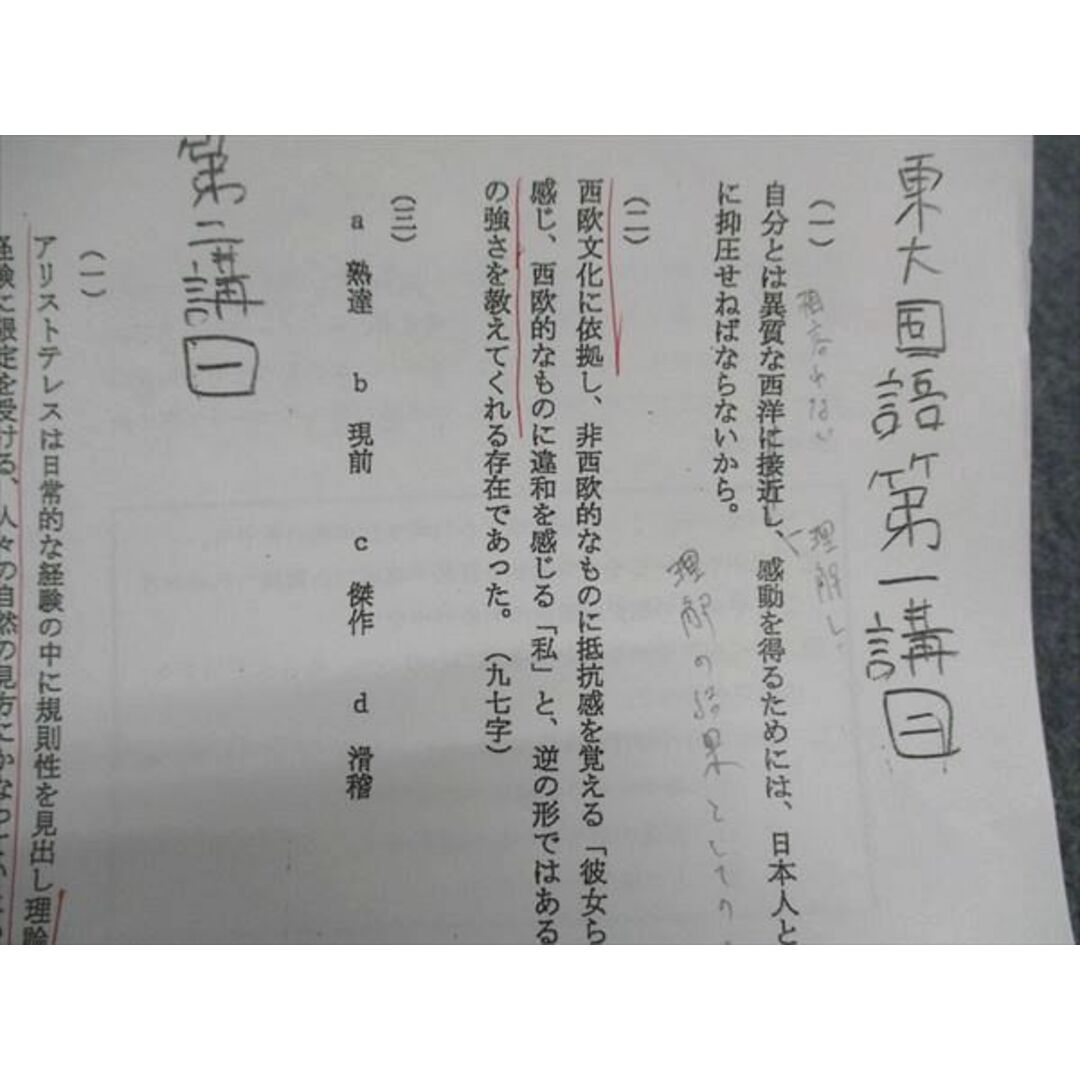 東大国語第一講 二
(一)
自分とは異質な西洋に接近し、感動を得るためには、日本人と
に抑圧せねばならないから。
理解し、
理解の結果としての
(二)
西欧文化に依拠し、非西欧的なものに抵抗感を覚える「彼女ら
感じ、西欧的なものに違和を感じる「私」と、逆の形ではある
の強さを教えてくれる存在であった。(九七字)
(三)
a 熟達 b 現前 c 傑作 d 滑稽
第二講 一
(一)
アリストテレスは日常的な経験の中に規則性を見出し理論
経験に限定を受ける、人々の自然の見方にかなって